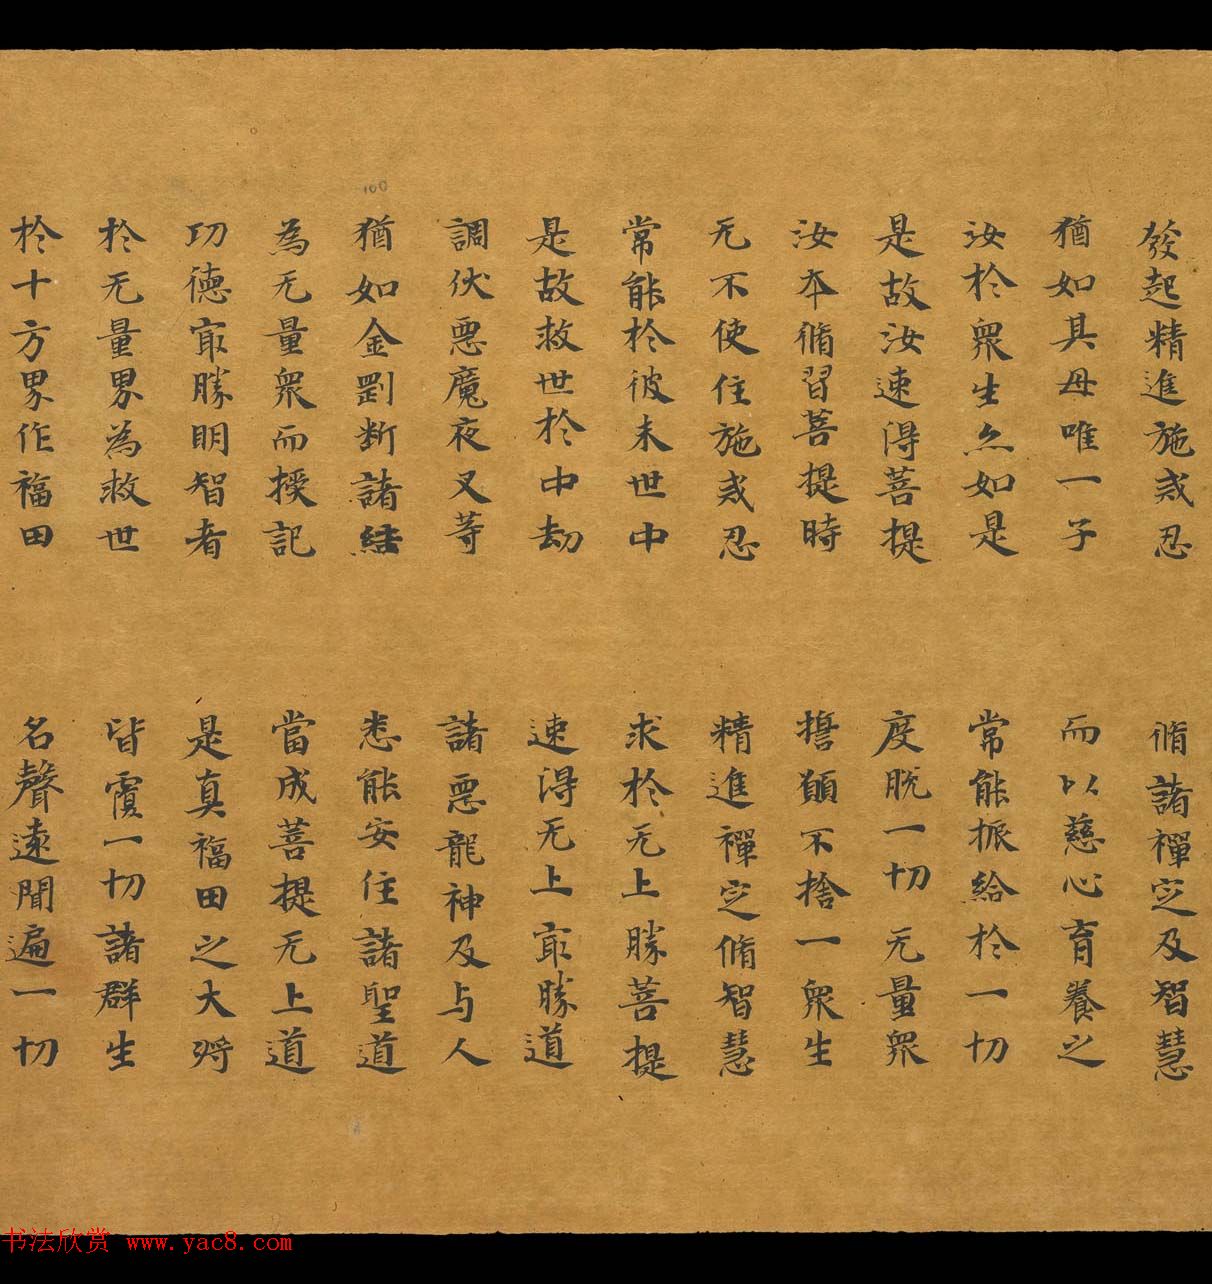 發起精進施戒忍　脩諸禪定及智慧
猶如其母唯一子　而以慈心育養之
汝於眾生亦如是　常能振給於一切
是故汝速得菩提　度脫一切无量眾
汝本脩習菩提時　擔願不捨一眾生
无不使住施戒忍　精進禪定脩智慧
常能於彼末世中　求於无上勝菩提
是故救世於中劫　速得无上最勝道
調伏惡魔夜叉等　諸惡龍神及与人
猶如金剛斷諸結　悉能安住諸聖道
為无量眾而授記　當成菩提无上道
功德最勝明智者　是真福田之大將
於无量界為救世　皆覆一切諸群生
於十方界作福田　名聲遠聞遍一切
书法欣赏 www.yac8.com